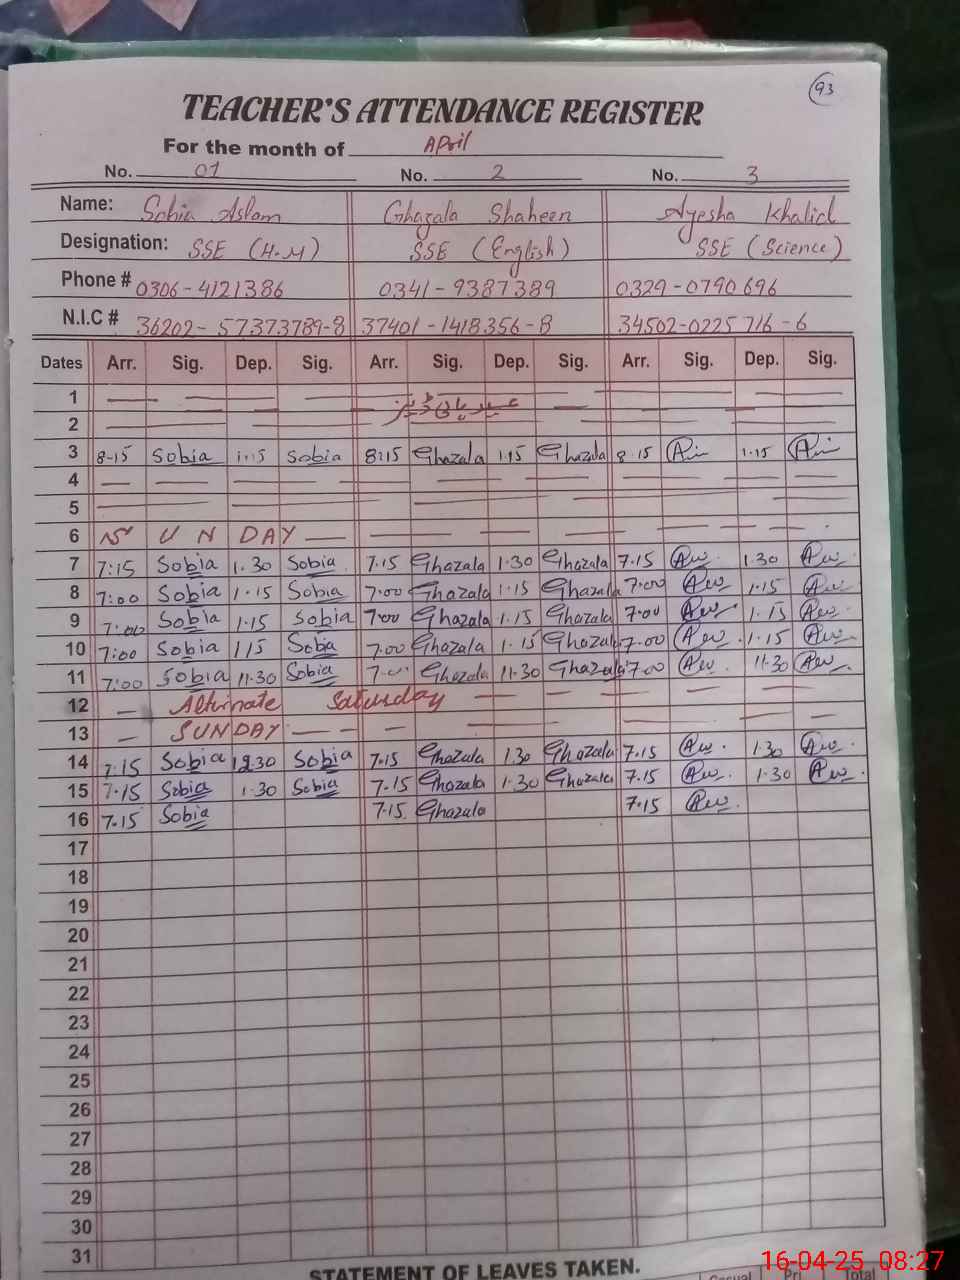 93
TEACHER'S ATTENDANCE REGISTER
For the month of April
No. 01 No. 2 No. 3
Name: Sobia Aslam Ghazala Shaheen Ayesha Khalid
Designation: SSE (H.M) SSE (English) SSE (Science)
Phone # 0306-4121386 0341-9387389 0329-0790696
N.I.C # 36202-57373789-8 37401-1418356-8 34502-0225716-6
Dates Arr. Sig. Dep. Sig. Arr. Sig. Dep. Sig. Arr. Sig. Dep. Sig.
1
2
3 8-15 Sobia 1.15 Sobia 8:15 Ghazala 1.15 Ghazala 8.15 1.15
4
5
6 SUNDAY
7 7:15 Sobia 1.30 Sobia 7.15 Ghazala 1.30 Ghazala 7.15 1.30
8 7:00 Sobia 1.15 Sobia 7.00 Ghazala 1.15 Ghazala 7.00 1.15
9 7:00 Sobia 1.15 Sobia 7.00 Ghazala 1.15 Ghazala 7.00 1.15
10 7:00 Sobia 115 Soba 7.00 Ghazala 1.15 Ghazala 7.00 1.15
11 7:00 Sobia 11.30 Sobia Ghazala 11.30 Ghazala 7.00 11.30
12 Altrinate Saturday
13 SUNDAY
14 7:15 Sobia Sobia 7.15 Ghazala 1.30 Ghazala 7.15 1.30
15 7.15 Sobia 1.30 Sobia 7.15 Ghazala 1.30 Ghazala 7.15 1.30
16 7.15 Sobia 7.15 Ghazala 7.15
17
18
19
20
21
22
23
24
25
26
27
28
29
30
31
STATEMENT OF LEAVES TAKEN.
16-04-25 08:27
Casual Pri Total